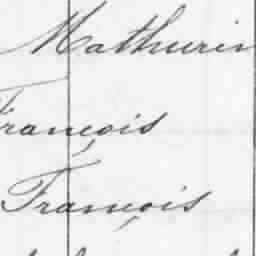 Mathurin
François
François